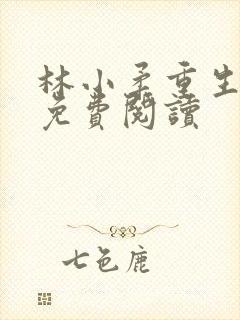 林小矛重生
免費閱讀
七色鹿